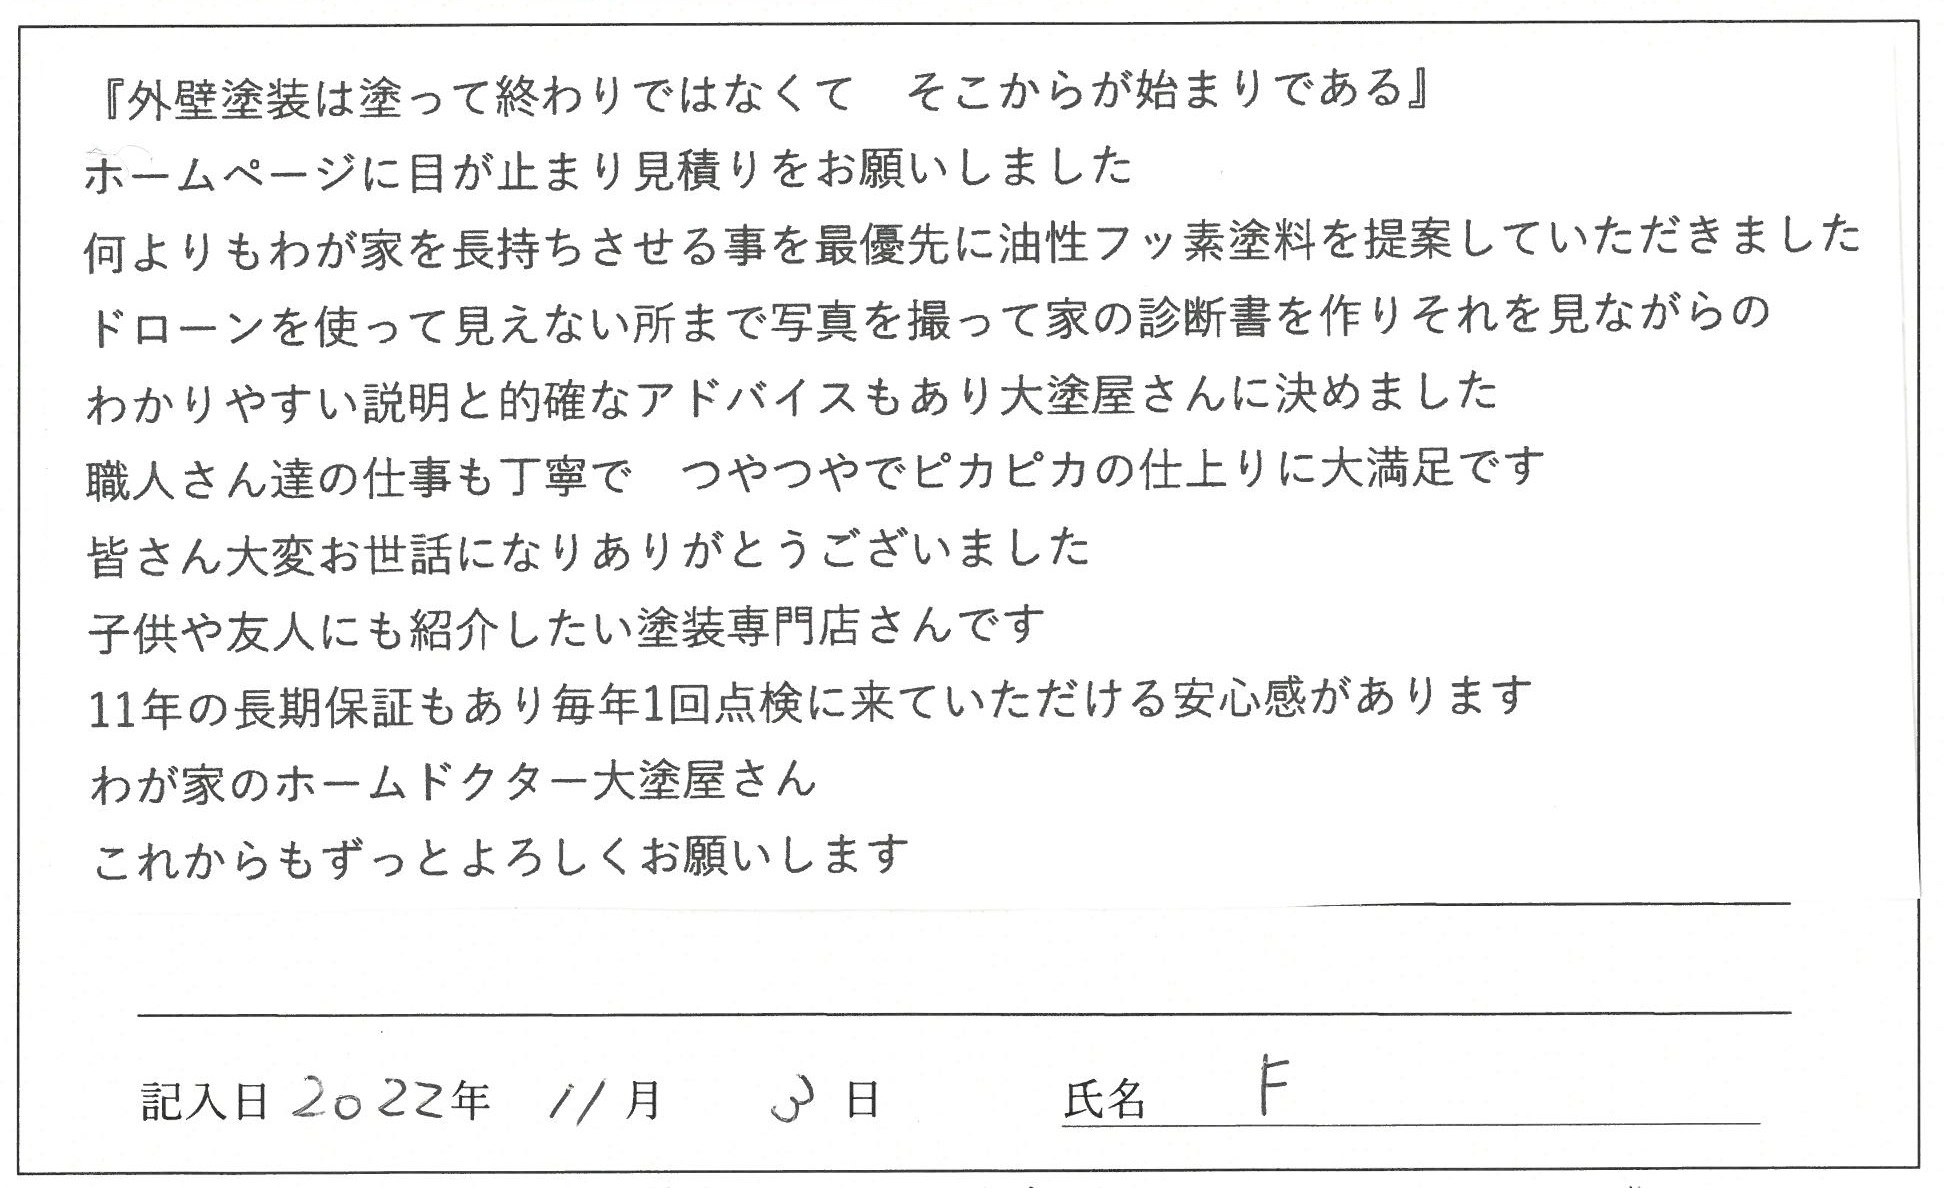 『外壁塗装は塗って終わりではなくて　そこからが始まりである』
ホームページに目が止まり見積りをお願いしました
何よりもわが家を長持ちさせる事を最優先に油性フッ素塗料を提案していただきました
ドローンを使って見えない所まで写真を撮って家の診断書を作りそれを見ながらの
わかりやすい説明と的確なアドバイスもあり大塗屋さんに決めました
職人さん達の仕事も丁寧で　つやつやでピカピカの仕上りに大満足です
皆さん大変お世話になりありがとうございました
子供や友人にも紹介したい塗装専門店さんです
11年の長期保証もあり毎年1回点検に来ていただける安心感があります
わが家のホームドクター大塗屋さん
これからもずっとよろしくお願いします
記入日 2022年 11月 3日 氏名 F